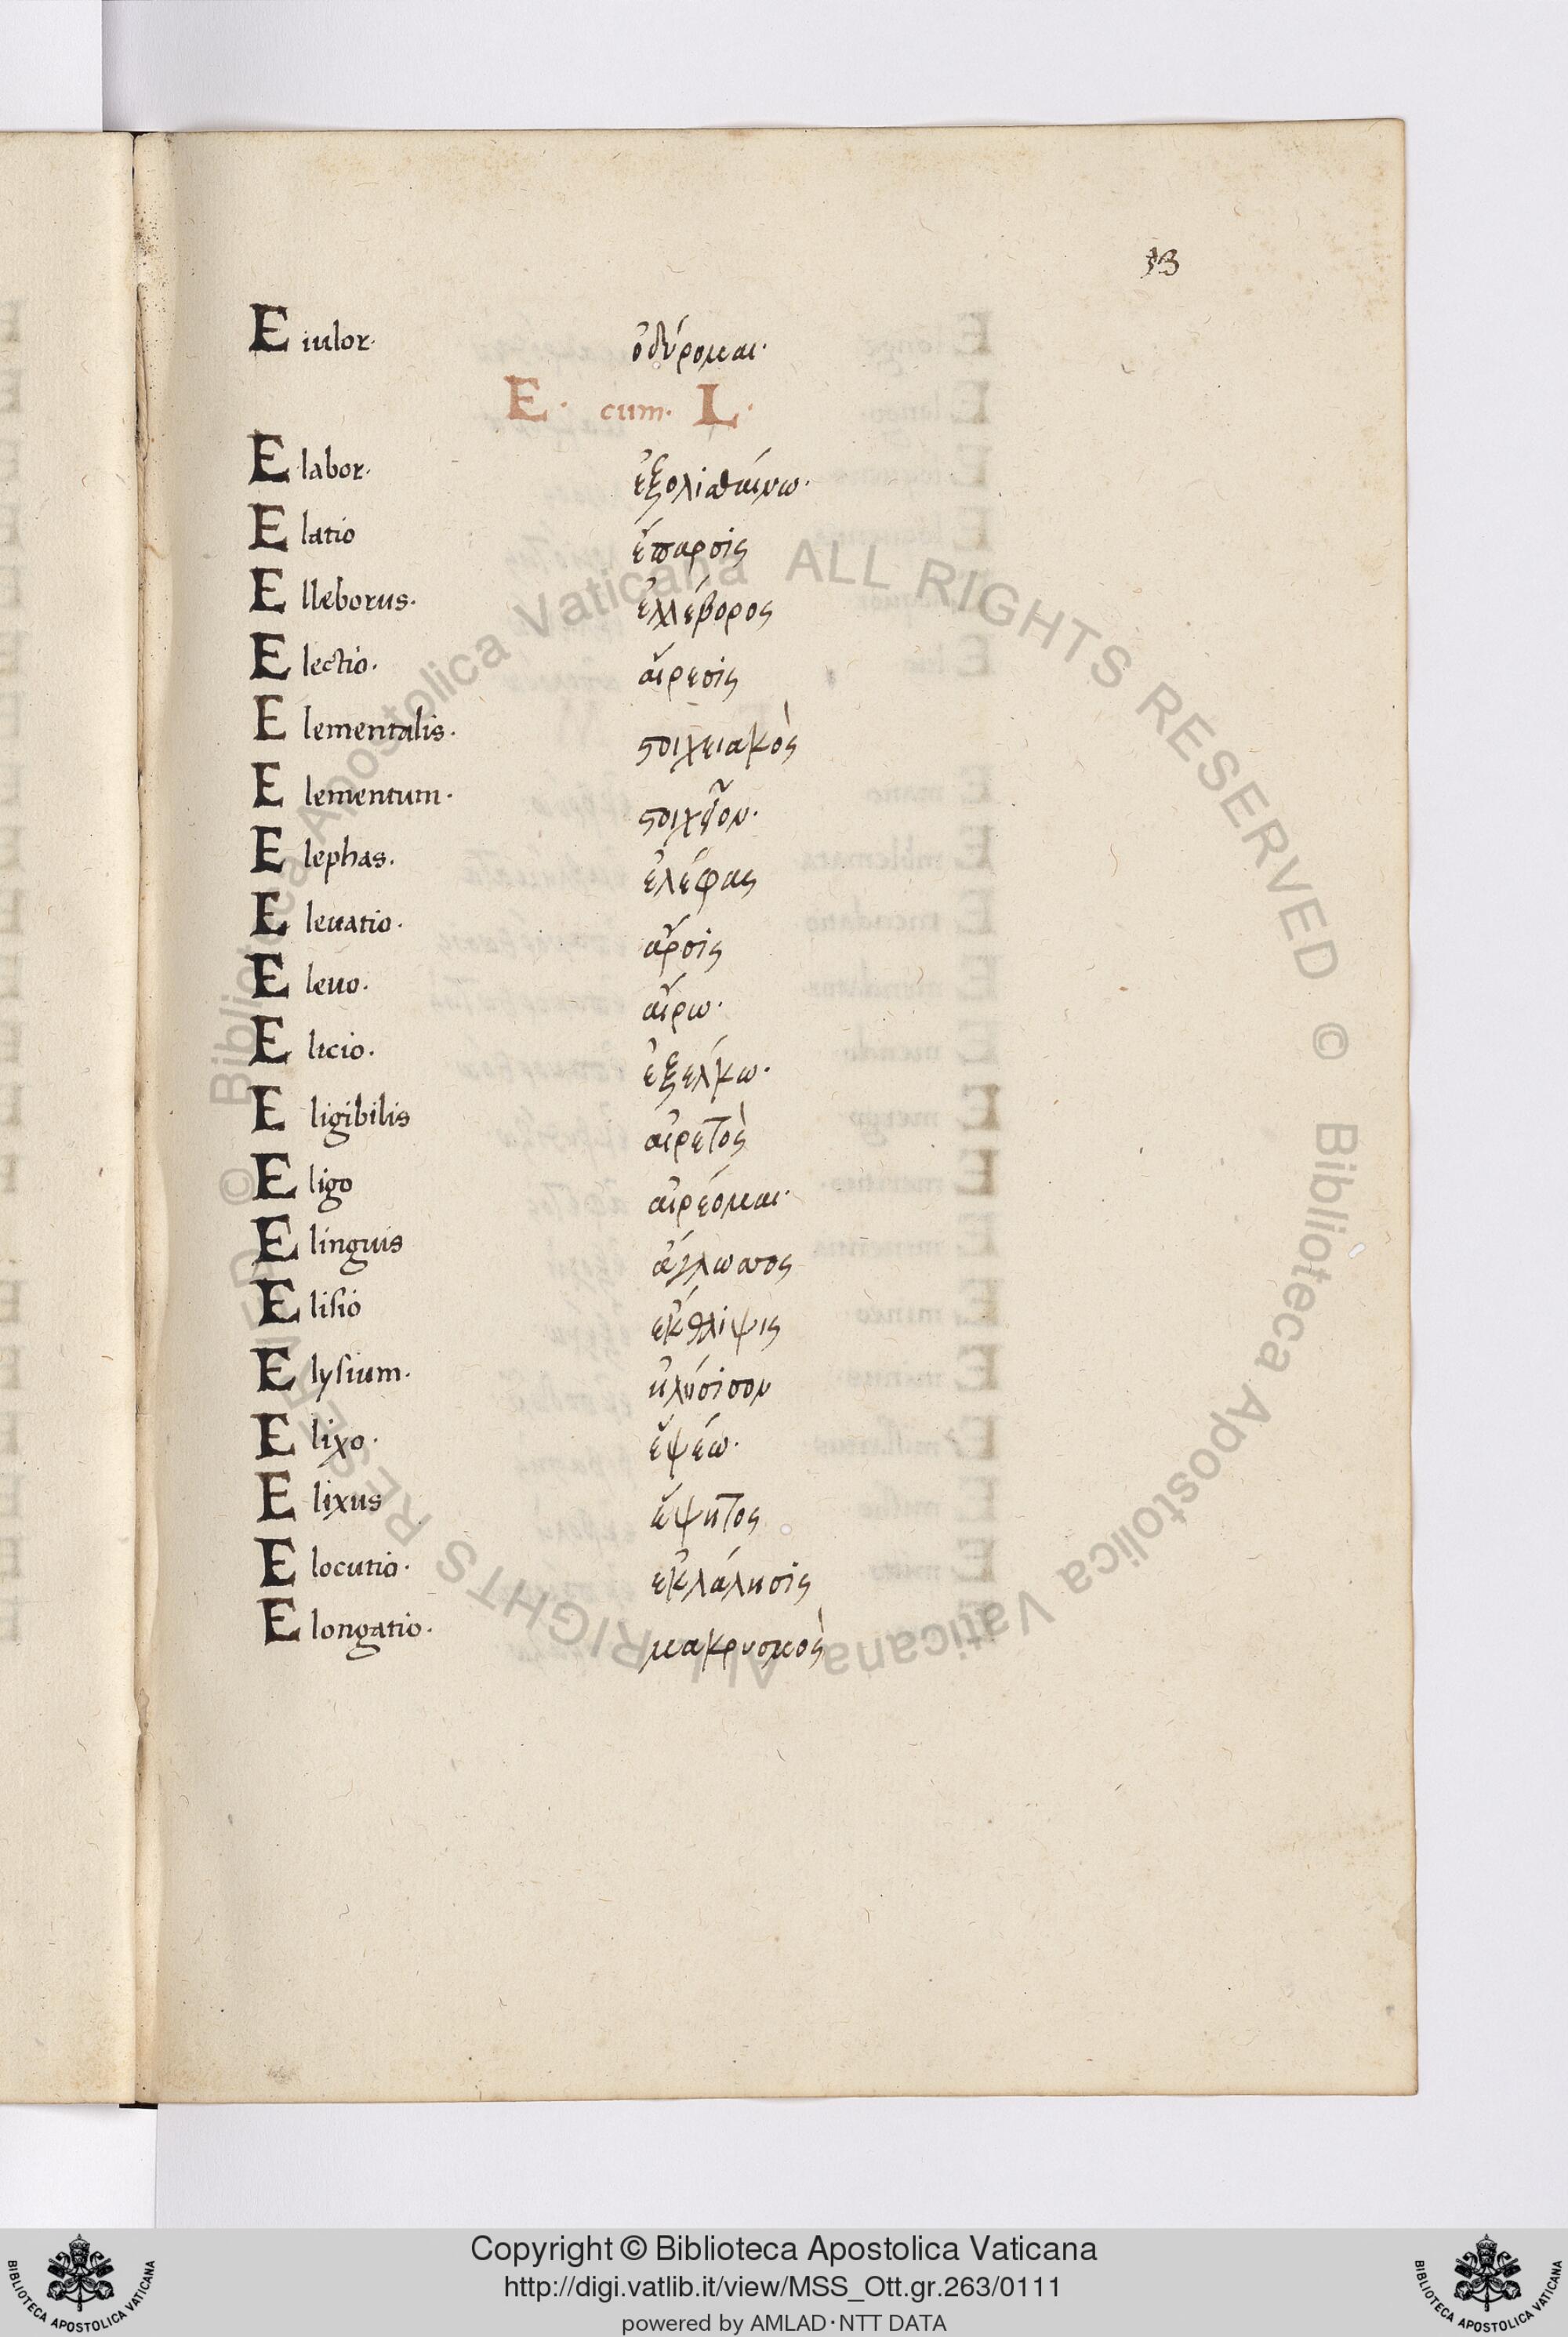 53
Eiulor· ὀδύρομαι·
E· cum· L·
Elabor· ἐξολισθαίνω·
Elatio ἔπαρσις
Elleborus· ἐλλέβορος
Electio· αἵρεσις
Elementalis· στοιχειακὸς
Elementum· στοιχεῖον·
Elephas· ἐλέφας
Eleuatio· ἄρσις
Eleuo· αἴρω·
Elicio· ἐξέλκω·
Eligibilis αἱρετὸς
Eligo αἱρέομαι·
Elinguis ἄγλωσσος
Elisio ἔκθλιψις
Elysium· ἠλύσιον
Elixo· ἑψέω·
Elixus ἕψητος
Elocutio· ἐκλάλησις
Elongatio· μακρυσμὸς
© Biblioteca Apostolica Vaticana ALL RIGHTS RESERVED © Biblioteca Apostolica Vaticana ALL RIGHTS RESERVED
Copyright © Biblioteca Apostolica Vaticana
http://digi.vatlib.it/view/MSS_Ott.gr.263/0111
powered by AMLAD·NTT DATA
BIBLIOTECA APOSTOLICA VATICANA
BIBLIOTECA APOSTOLICA VATICANA